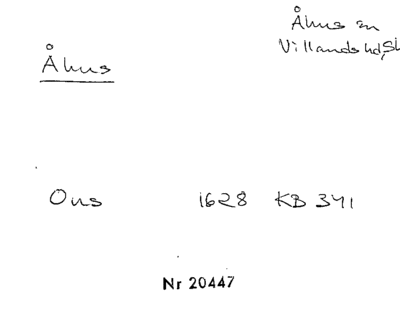 Åhus
Åhus sn
Villands hd, Sk
Ous 1628 KB 341
Nr 20447